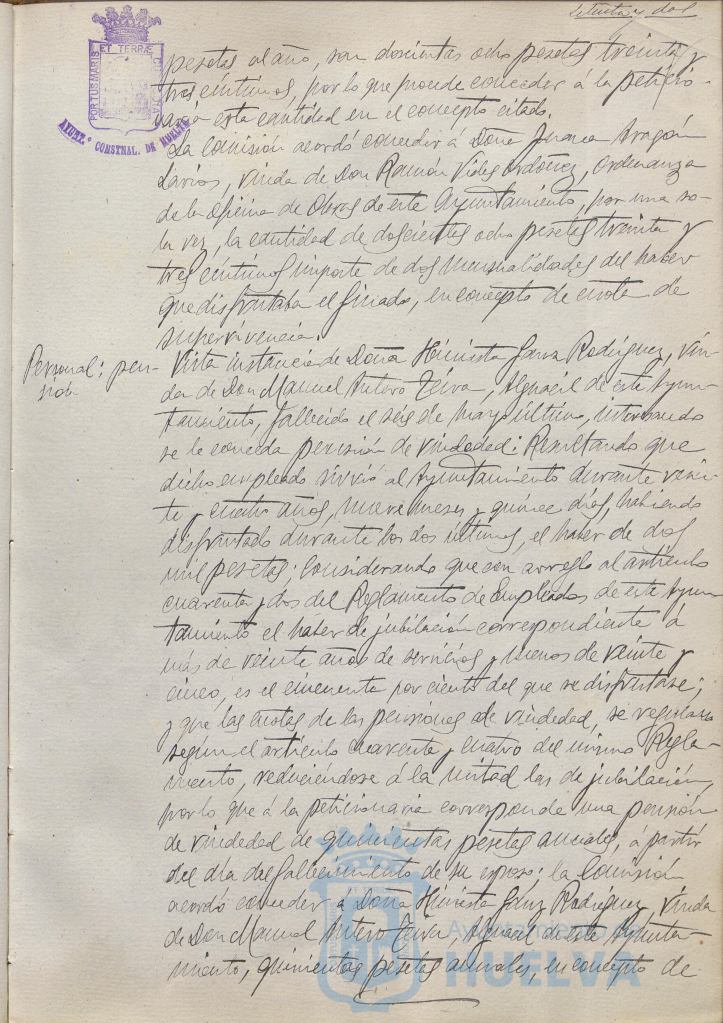 setenta y dos
PORTUS MARIS ET TERRÆ CUSTODIA
AYUNT.º CONSTNAL. DE HUELVA
pesetas al año, son doscientas ocho pesetas treinta y
tres céntimos, por lo que procede conceder á la peticio-
naria esta cantidad en el concepto citado.
La Comisión acordó conceder á Doña Juana Aragón
Larios, viuda de Don Ramón Vides Ordóñez, Ordenanza
de la Oficina de Obras de este Ayuntamiento, por una so-
la vez, la cantidad de doscientas ocho pesetas treinta y
tres céntimos importe de dos mensualidades del haber
que disfrutaba el finado, en concepto de cuota de
supervivencia.
Personal: pen-
sión
Vista instancia de Doña Hiniesta Rodríguez, viu-
da de Don Manuel Antero Leiva, Alguacil de este Ayun-
tamiento, fallecido el seis de mayo último, interesando
se le conceda pensión de viudedad: Resultando que
dicho empleado sirvió al Ayuntamiento durante vein-
te y cuatro años, nueve meses y quince días, habiendo
disfrutado durante los dos últimos, el haber de dos
mil pesetas; Considerando que con arreglo al artículo
cuarenta y dos del Reglamento de Empleados de este Ayun-
tamiento el haber de jubilación correspondiente á
más de veinte años de servicios y menos de veinte y
cinco, es el cincuenta por ciento del que se disfrutase;
y que las cuotas de las pensiones de viudedad, se regularán
según el artículo cuarenta y cuatro del mismo Regla-
mento, reduciéndose á la mitad las de jubilación,
por lo que á la peticionaria corresponde una pensión
de viudedad de quinientas pesetas anuales, á partir
del día del fallecimiento de su esposo; la Comisión
acordó conceder á Doña Hiniesta Rodríguez, viuda
de Don Manuel Antero Leiva, Alguacil de este Ayunta-
miento, quinientas pesetas anuales, en concepto de
Ayuntamiento de
HUELVA